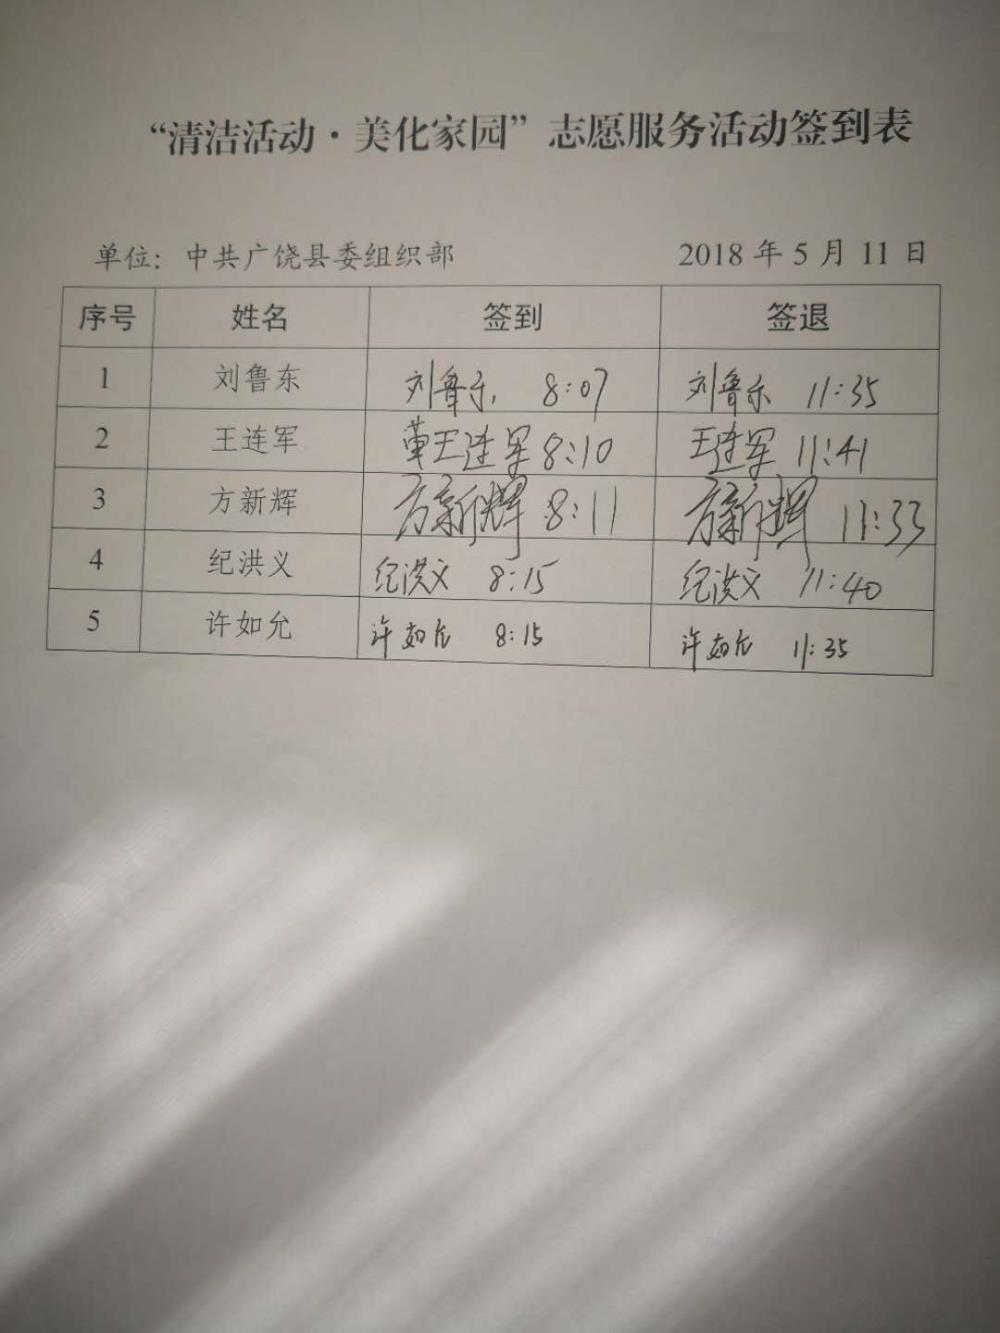 “清洁活动·美化家园”志愿服务活动签到表
单位：中共广饶县委组织部 2018年5月11日
序号 姓名 签到 签退
1 刘鲁东 刘鲁东 8:07 刘鲁东 11:35
2 王连军 王连军 8:10 王连军 11:41
3 方新辉 方新辉 8:11 方新辉 11:33
4 纪洪义 纪洪义 8:15 纪洪义 11:40
5 许如允 许如允 8:15 许如允 11:35